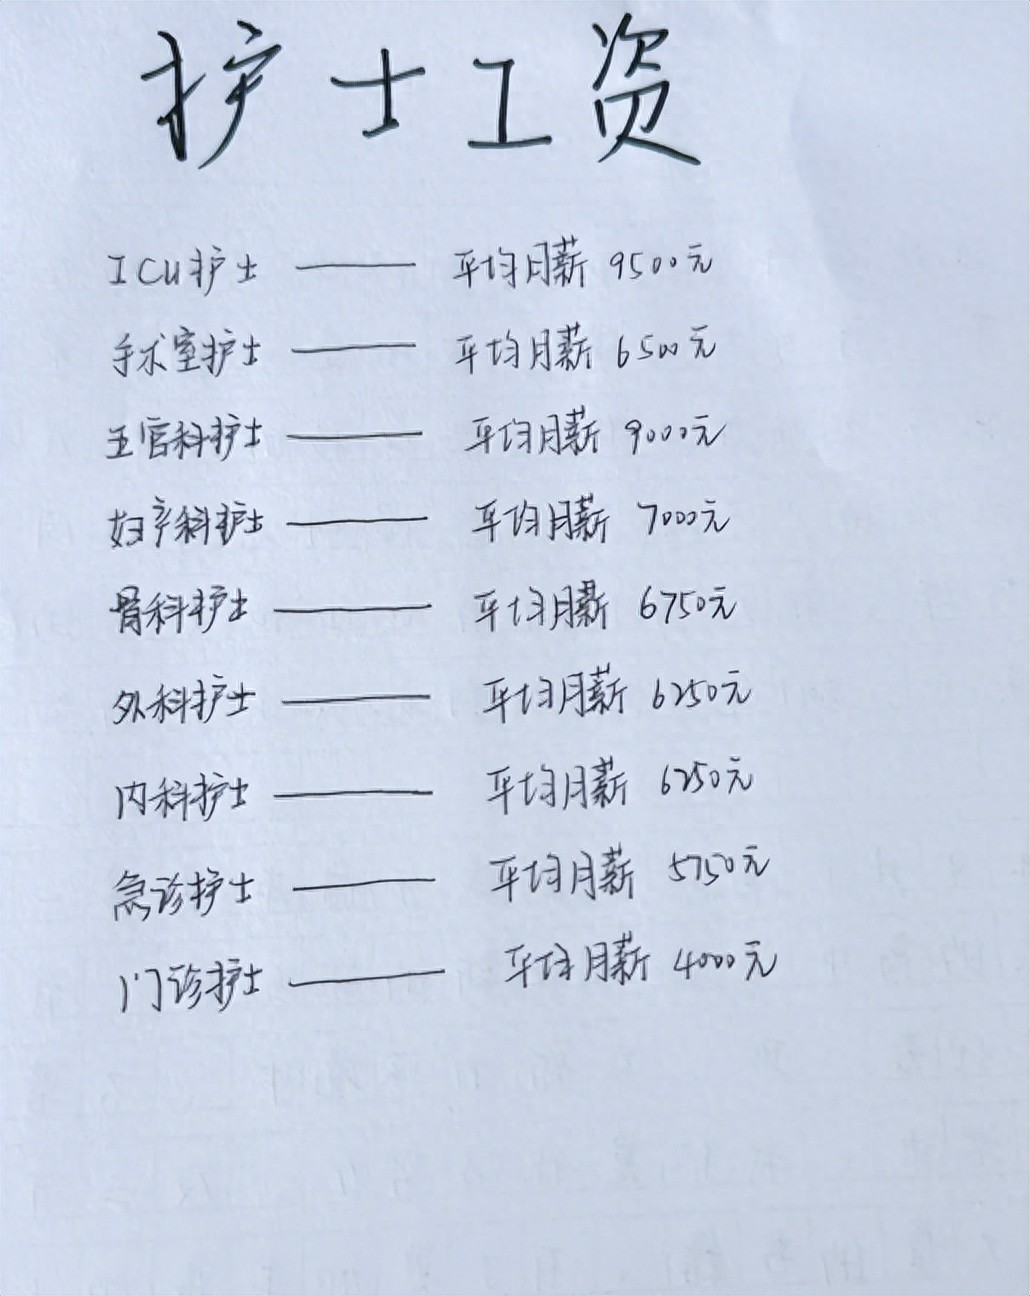 护士工资
ICU护士 —— 平均月薪 9500元
手术室护士 —— 平均月薪 6500元
五官科护士 —— 平均月薪 9000元
妇产科护士 —— 平均月薪 7000元
骨科护士 —— 平均月薪 6750元
外科护士 —— 平均月薪 6250元
内科护士 —— 平均月薪 6250元
急诊护士 —— 平均月薪 5750元
门诊护士 —— 平均月薪 4000元